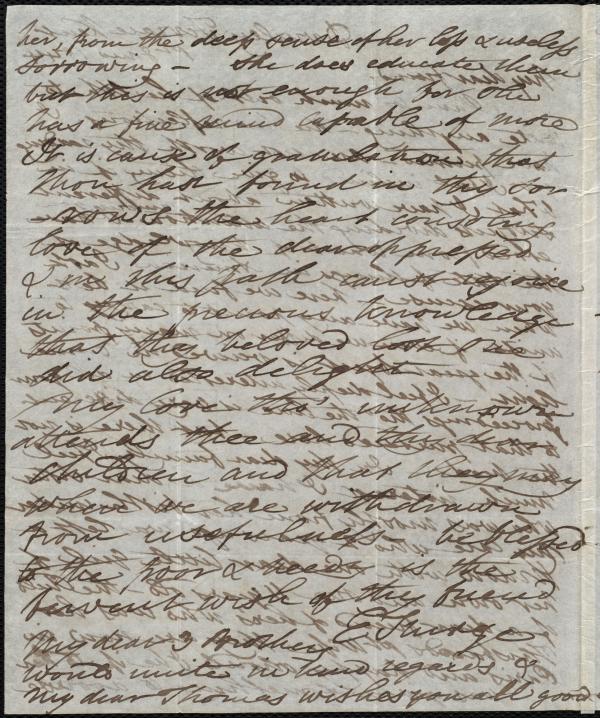 her, from the deep sense of her loss & useless
sorrowing – She does educate them
but this is not enough for one
has a fine mind capable of more
It is cause of gratulation that
Thou hast found in thy sor
rows the heart
love of the dear oppressed
& in this path canst rejoice
in the precious knowledge
that thy beloved lost one
did also delight
My love tho' unknown
attends thee and thy dear
children and that they may
where we are withdrawn
from usefulness – be blessed
to the poor & needy is the
fervent wish of thy friend
E Sturge
My dear 3 brothers
would unite in kind regards &
My dear Thomas wishes you all good